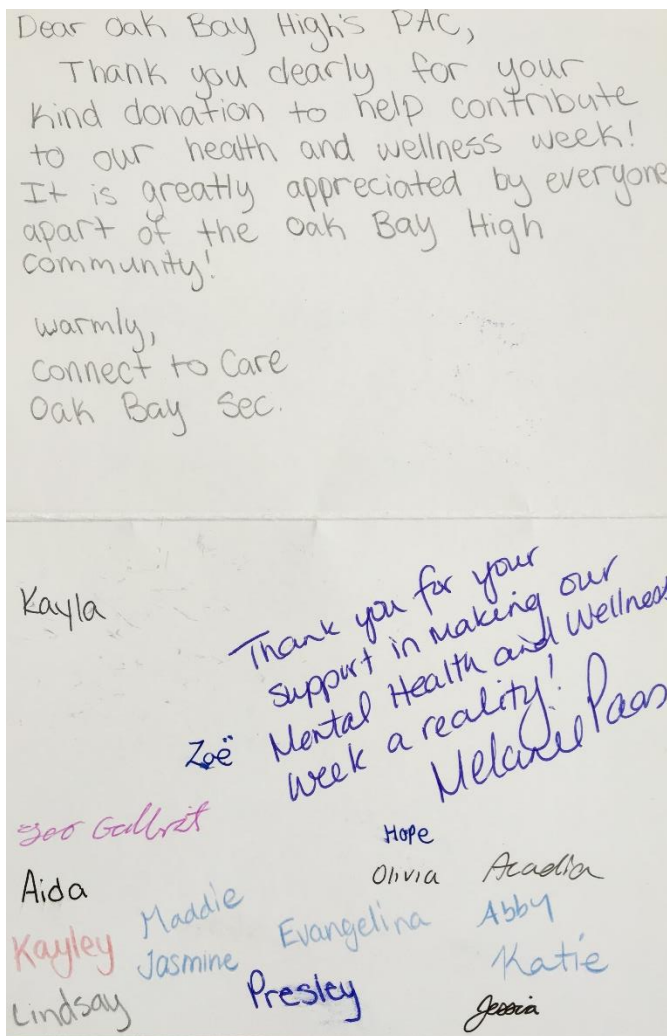 Dear Oak Bay High's PAC,
Thank you dearly for your
kind donation to help contribute
to our health and wellness week!
It is greatly appreciated by everyone
apart of the Oak Bay High
community!
warmly,
Connect to Care
Oak Bay Sec.
Kayla
Thank you for your
support in making our
Mental Health and Wellness
week a reality!
Melanie Paas
Zoë
Hope
Olivia
Acadia
Aida
Maddie
Evangelina
Abby
Kayley
Jasmine
Katie
Lindsay
Presley
Jessia